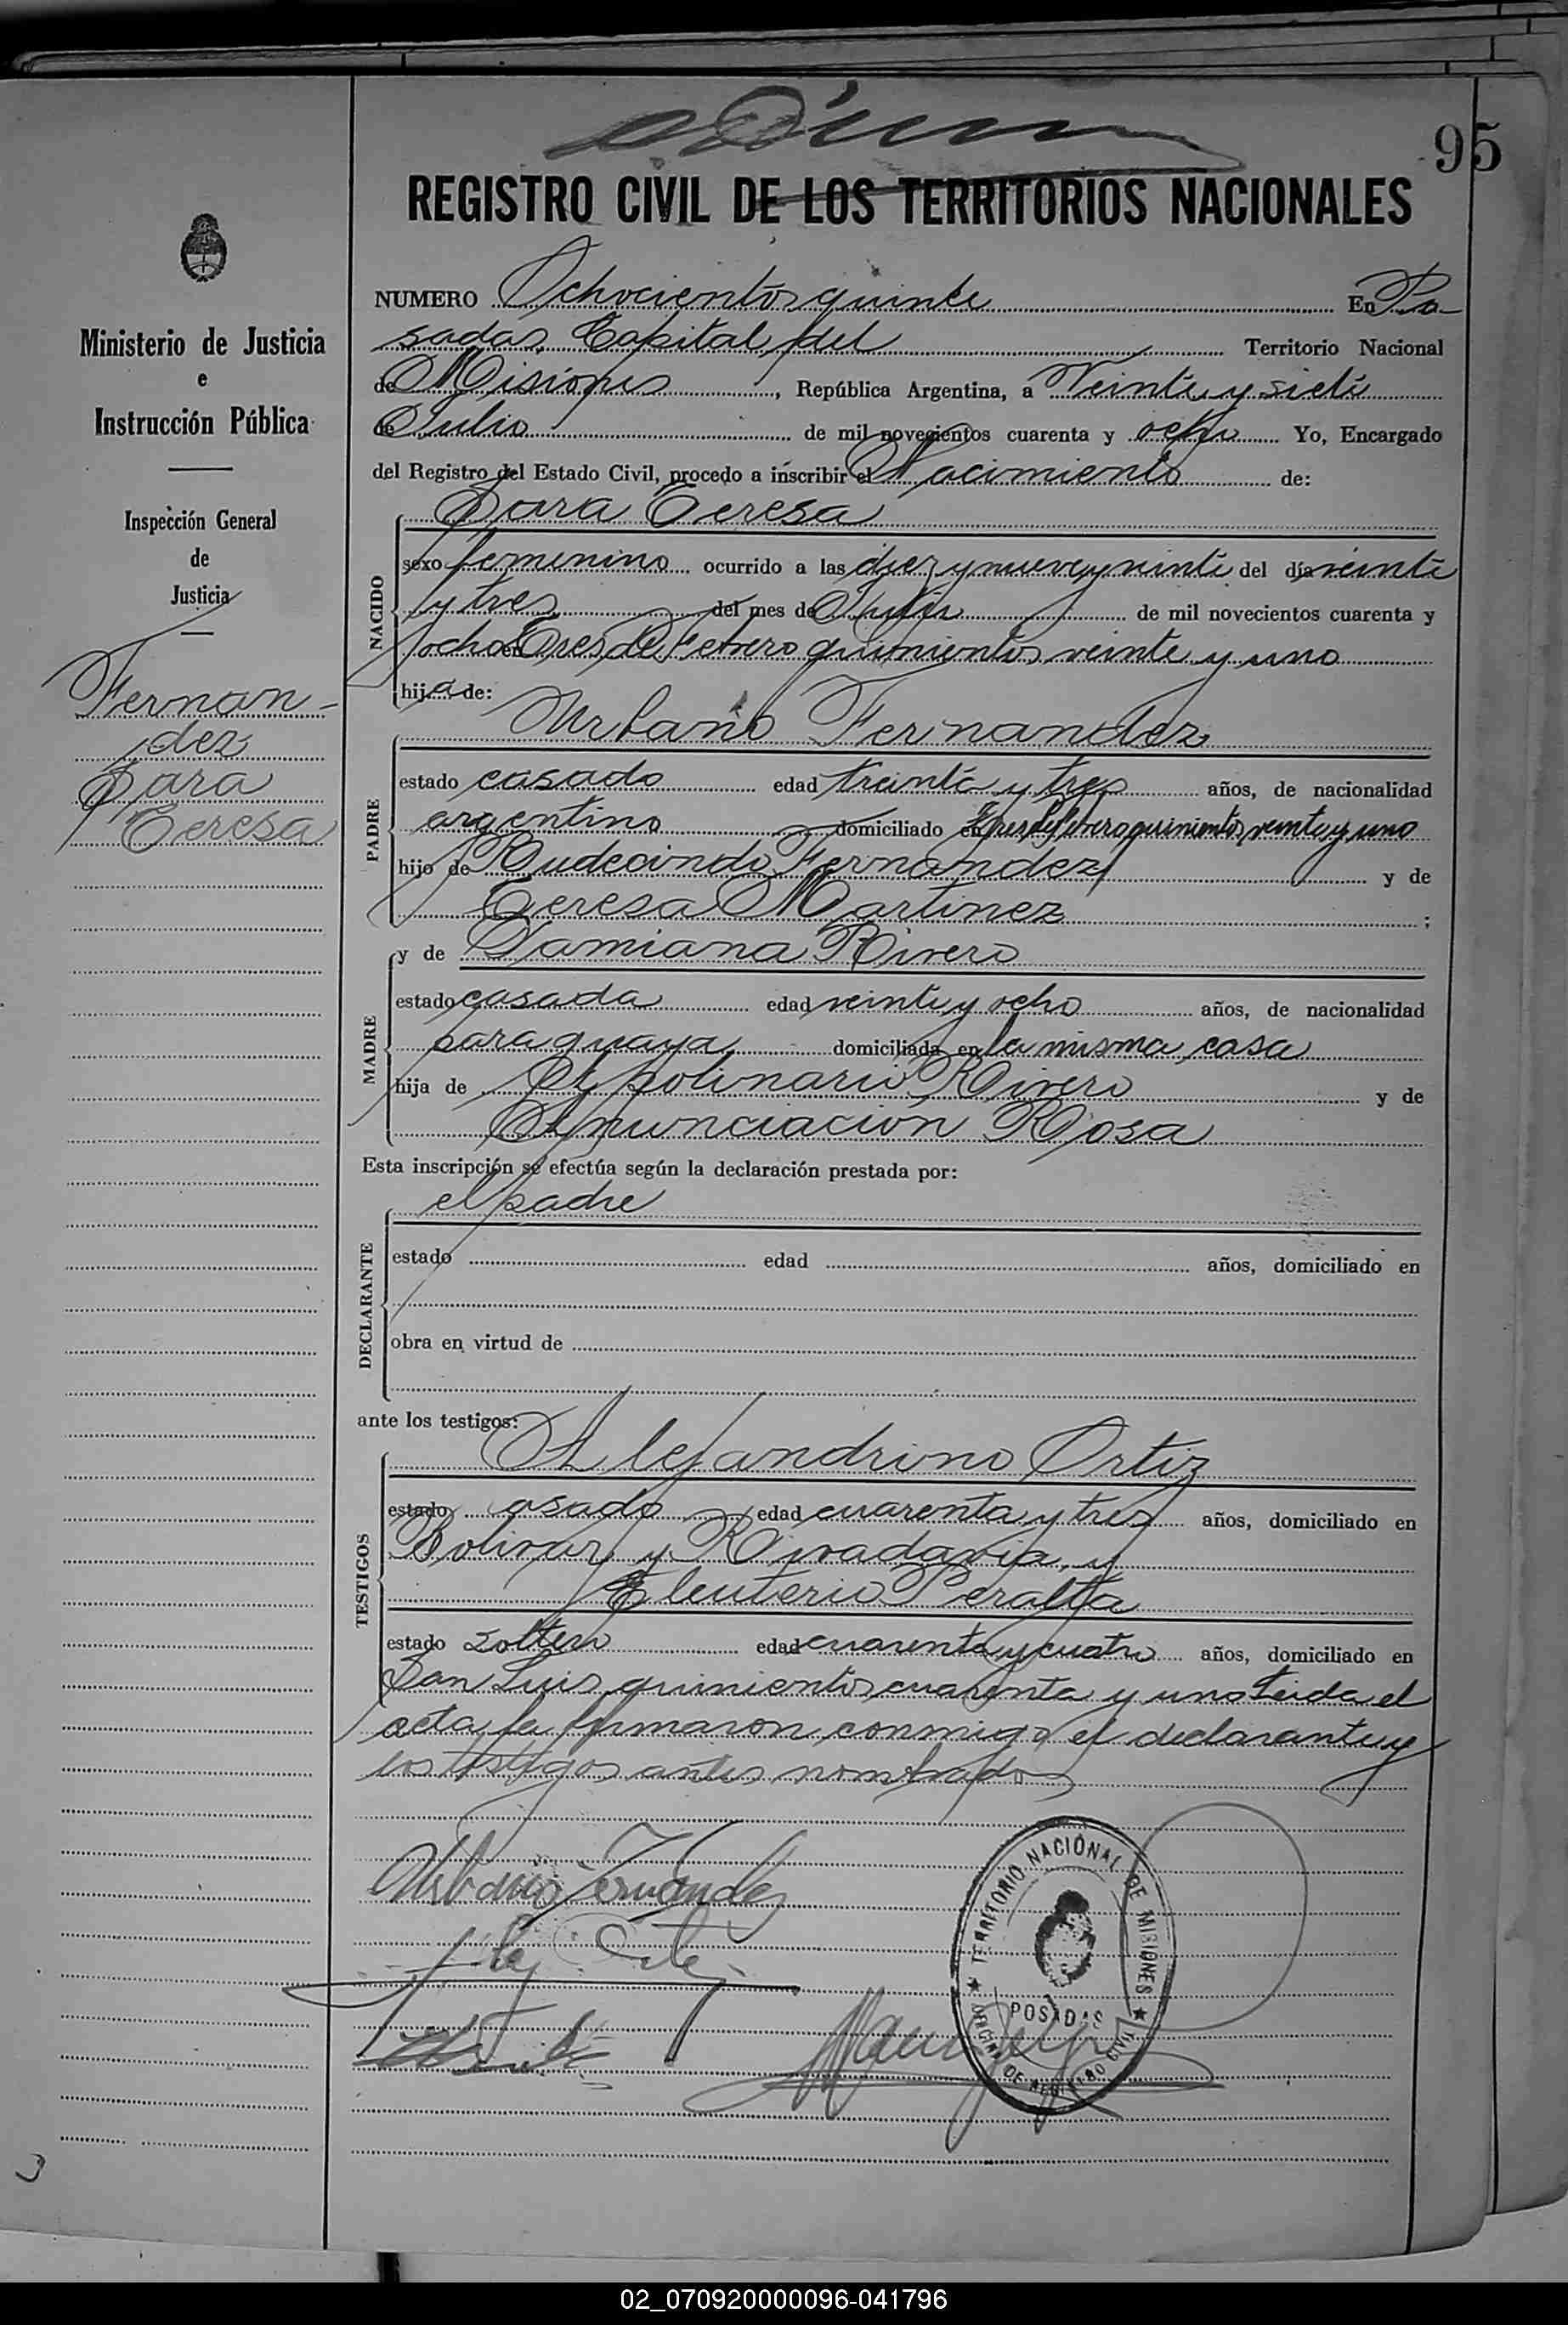 95
REGISTRO CIVIL DE LOS TERRITORIOS NACIONALES
NUMERO Ochocientos quince En Po-
sadas, Capital del Territorio Nacional
de Misiones, República Argentina, a Veinte y siete
de Julio de mil novecientos cuarenta y ocho Yo, Encargado
del Registro del Estado Civil, procedo a inscribir el Nacimiento de:
NACIDO
Sara Teresa
sexo femenino ocurrido a las diez y nueve y veinte del día veinte
y tres del mes de Julio de mil novecientos cuarenta y
ocho en Tres de Febrero quinientos veinte y uno
hija de:
PADRE
Urbano Fernandez
estado casado edad treinta y tres años, de nacionalidad
argentino domiciliado en Tres de febrero quinientos veinte y uno
hijo de Rudecindo Fernandez y de
Teresa Martinez ;
MADRE
y de Damiana Rivero
estado casada edad veinte y ocho años, de nacionalidad
paraguaya domiciliada en la misma casa
hija de Apolinario Rivero y de
Anunciación Rosa
Esta inscripción se efectúa según la declaración prestada por:
DECLARANTE
el padre
estado edad años, domiciliado en
obra en virtud de
ante los testigos:
TESTIGOS
Alejandrino Ortiz
estado casado edad cuarenta y tres años, domiciliado en
Bolivar y Rivadavia, y
Eleuterio Peralta
estado soltero edad cuarenta y cuatro años, domiciliado en
San Luis quinientos cuarenta y uno Leida el
acta la firmaron conmigo el declarante y
los testigos antes nombrados
Urbano Fernandez
TERRITORIO NACIONAL DE MISIONES
POSADAS
OFICINA DE REGISTRO CIVIL
Ministerio de Justicia
e
Instrucción Pública
Inspección General
de
Justicia
Fernan-
dez
Sara
Teresa
02_070920000096-041796